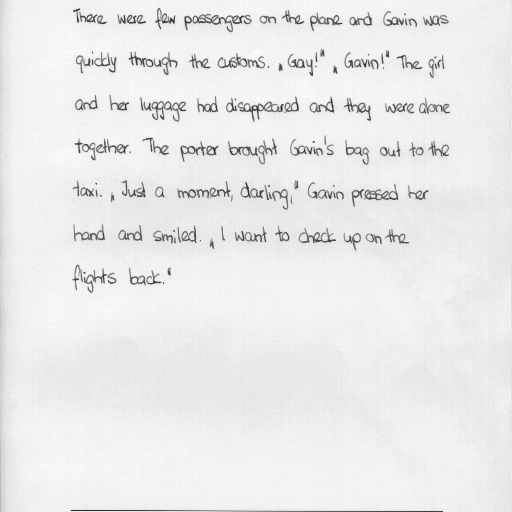 There were few passengers on the plane and Gavin was
quickly through the customs. „Gay!" „Gavin!" The girl
and her luggage had disappeared and they were alone
together. The porter brought Gavin's bag out to the
taxi. „Just a moment, darling," Gavin pressed her
hand and smiled. „I want to check up on the
flights back."